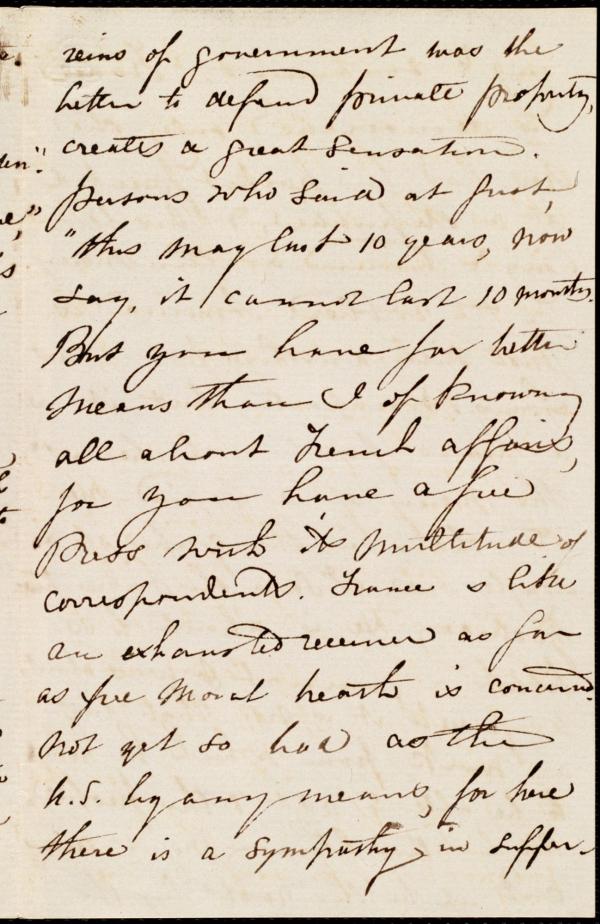 reins of government was the
better to defend private property,
creates a great sensation.
Persons who said at first,
"this may last 10 years, now
say, it cannot last 10 months.
But you have far better
means than I of knowing
all about French affairs,
for you have a free
Press with its multitude of
correspondents. France is like
an exhausted receiver as far
as free moral breath is concerned.
Not yet so bad as the
U.S. by any means, for here
there is a sympathy in suffer-